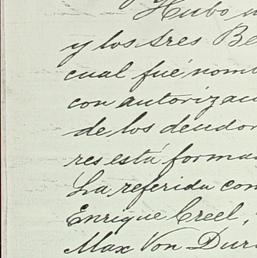 Hubo u
y los tres Be
cual fué nomb
con autorizac
de los deudor
res está forma
La referida con
Enrique Creel,
Max Von Dur